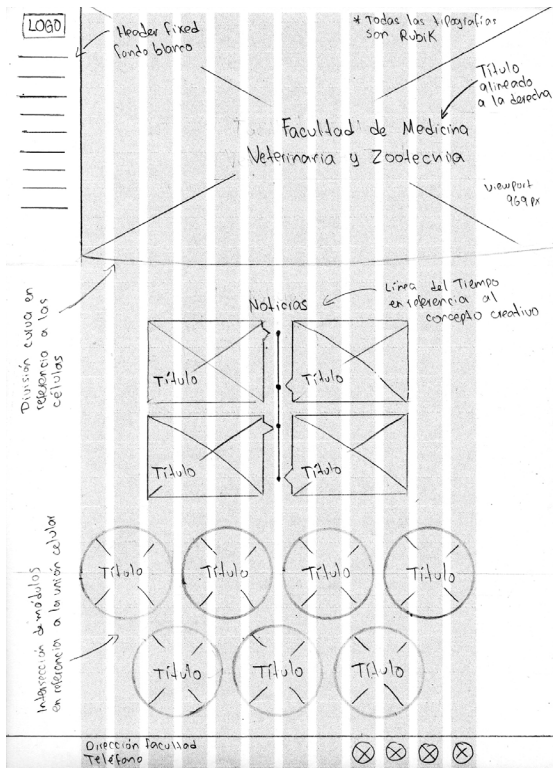 LOGO
Header fixed
fondo blanco
* Todas las tipografías
son Rubik
Título
alineado
a la derecha
Facultad de Medicina
Veterinaria y Zootecnia
viewport
969 px
División curva en
referencia a las
células
Noticias
Línea del Tiempo
en referencia al
concepto creativo
Título
Título
Título
Título
Intersección de módulos
en referencia a la unión celular
Título
Título
Título
Título
Título
Título
Título
Dirección facultad
Teléfono